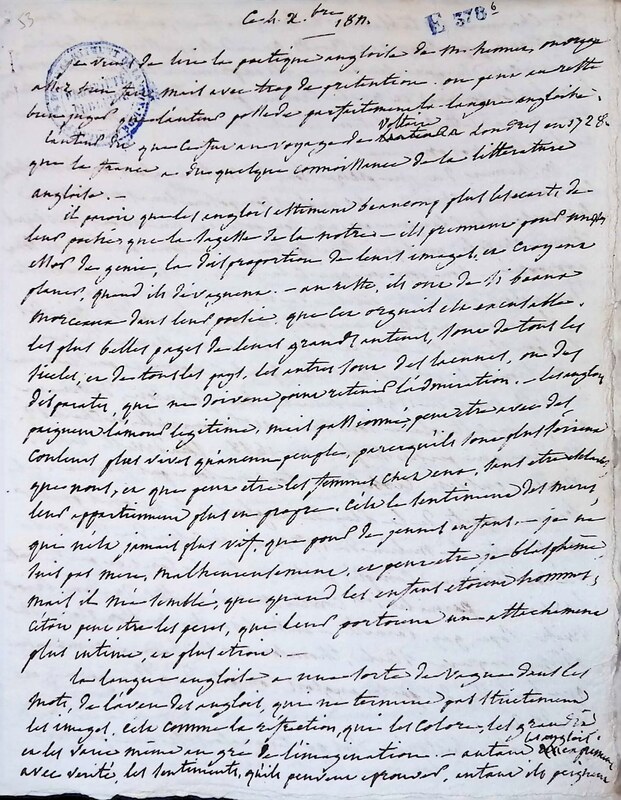 53
Ce 4. X.bre 1811.
E 378 6
je viens de lire la poétique angloise de m. hennet, ouvrage
assez bien fait mais avec trop de prétention. on peut au reste
bien juger que l'auteur possede parfaitement la langue angloise.
l'auteur dit que ce fut au voyage de Voltaire a Londres en 1728.
que la france a du quelque connoissance de la littérature
angloise. —
il paroit que les anglois estiment beaucoup plus les ecarts de
leur poésie que la sagesse de la notre — ils prennent pour un
effet de genie, la disproportion de leurs images, et croyent
planer, quand ils divaguent. — au reste, ils ont de si beaux
morceaux dans leur poésie, que cet orgueil est excusable.
les plus belles pages de leurs grands auteurs, sont de tous les
siecles, et de tous les pays, les autres sont des lacunes, ou des
disparates, qui ne doivent point retenir l'admiration. — les anglois
peignent l'amour legitime, mais passionné, peut etre avec des
couleurs plus vives qu'aucun peuple, parcequ'ils sont plus
que nous, et que peut etre les femmes chez eux, sans etre
leur appartiennent plus en propre. c'est le sentiment des meres,
qui n'est jamais plus vif, que pour de jeunes enfans. — je ne
suis pas mere, malheureusement, et peut etre je blaspheme
mais il m'a semblé, que quand les enfans etoient hommes,
c'étoit peut etre les peres, qui leur portoient un attachement
plus intime, et plus etroit. —
la langue angloise a une sorte de vague dans les
mots, de l'aveu des anglois, qui ne termine pas strictement
les images, c'est comme la refraction, qui les colore, les grandit
et les varie même au gré de l'imagination. — autant les anglois expriment
avec verité, les sentiments, qu'ils peuvent eprouver, autant ils peignent